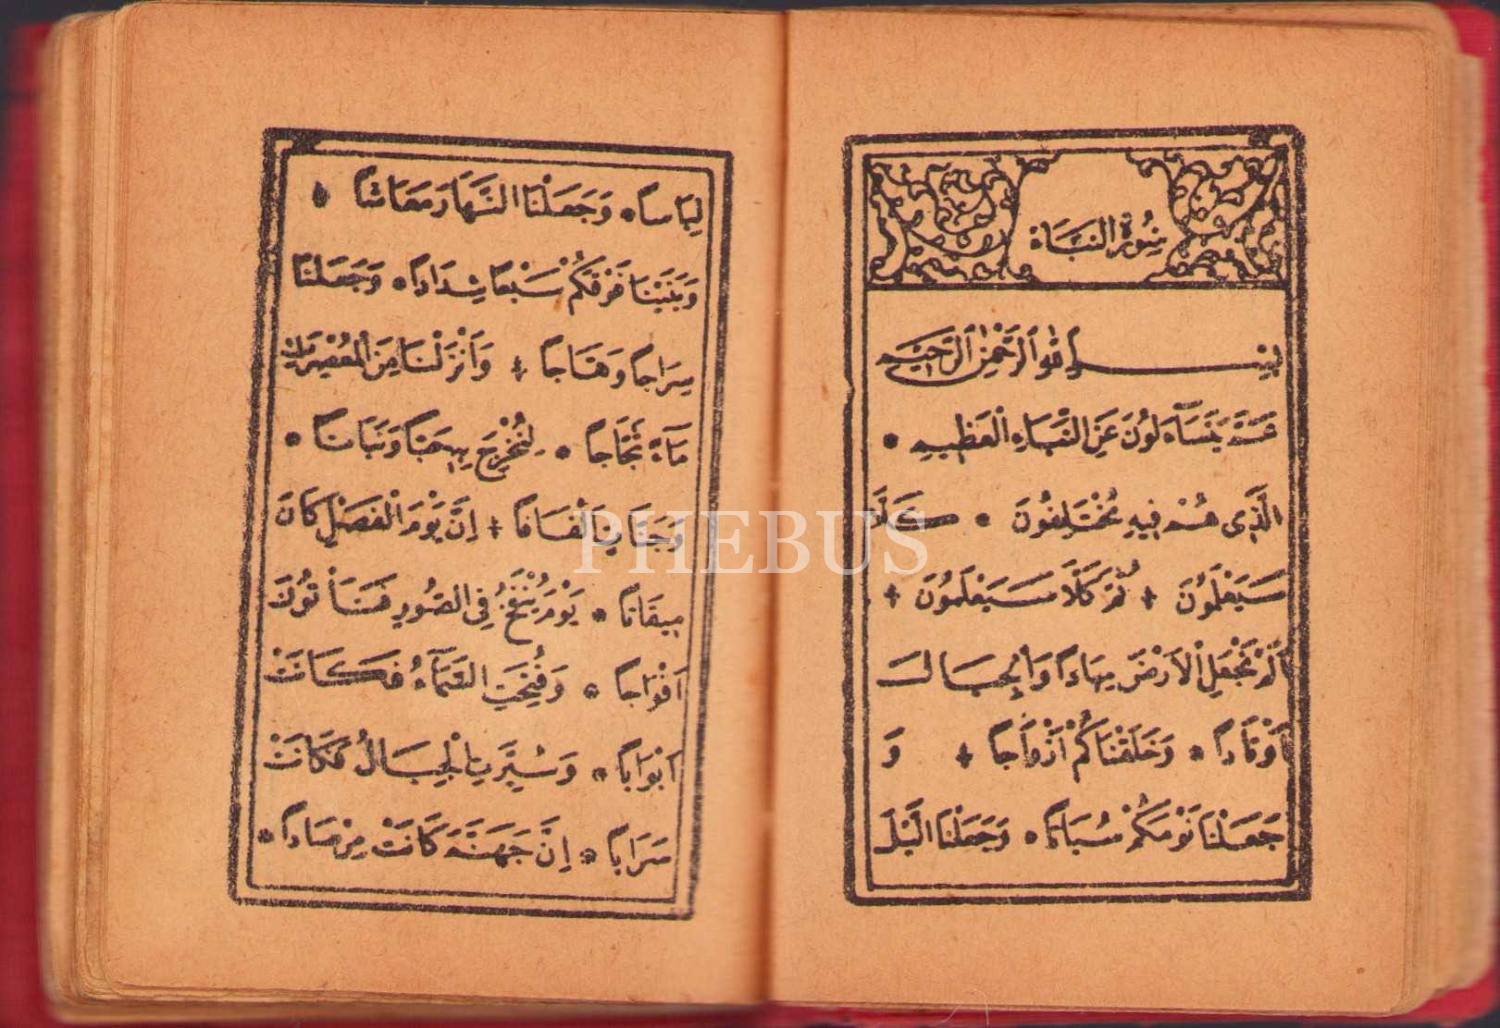 سُورَةُ النَّبَاءِ
بِسْــــمِ اللهِ الرَّحْمٰنِ الرَّحِيمِ
عَمَّ يَتَسَآءَلُونَ عَنِ النَّبَاءِ الْعَظِيمِ •
الَّذِى هُمْ فِيهِ مُخْتَلِفُونَ • كَلَّا
سَيَعْلَمُونَ + ثُمَّ كَلَّا سَيَعْلَمُونَ +
اَلَمْ نَجْعَلِ الْاَرْضَ مِهَادًا وَالْجِبَالَ
اَوْتَادًا • وَخَلَقْنَاكُمْ اَزْوَاجًا + وَ
جَعَلْنَا نَوْمَكُمْ سُبَاتًا • وَجَعَلْنَا الَّيْلَ
لِبَاسًا • وَجَعَلْنَا النَّهَارَ مَعَاشًا •
وَبَنَيْنَا فَوْقَكُمْ سَبْعًا شِدَادًا • وَجَعَلْنَا
سِرَاجًا وَهَّاجًا + وَاَنْزَلْنَا مِنَ الْمُعْصِرَاتِ
مَآءً ثَجَّاجًا • لِنُخْرِجَ بِهِ حَبًّا وَنَبَاتًا •
وَجَنَّاتٍ اَلْفَافًا + اِنَّ يَوْمَ الْفَصْلِ كَانَ
مِيقَاتًا • يَوْمَ يُنْفَخُ فِى الصُّورِ فَتَأْتُونَ
اَفْوَاجًا • وَفُتِحَتِ السَّمَآءُ فَكَانَتْ
اَبْوَابًا • وَسُيِّرَتِ الْجِبَالُ فَكَانَتْ
سَرَابًا • اِنَّ جَهَنَّمَ كَانَتْ مِرْصَادًا •
PHEBUS